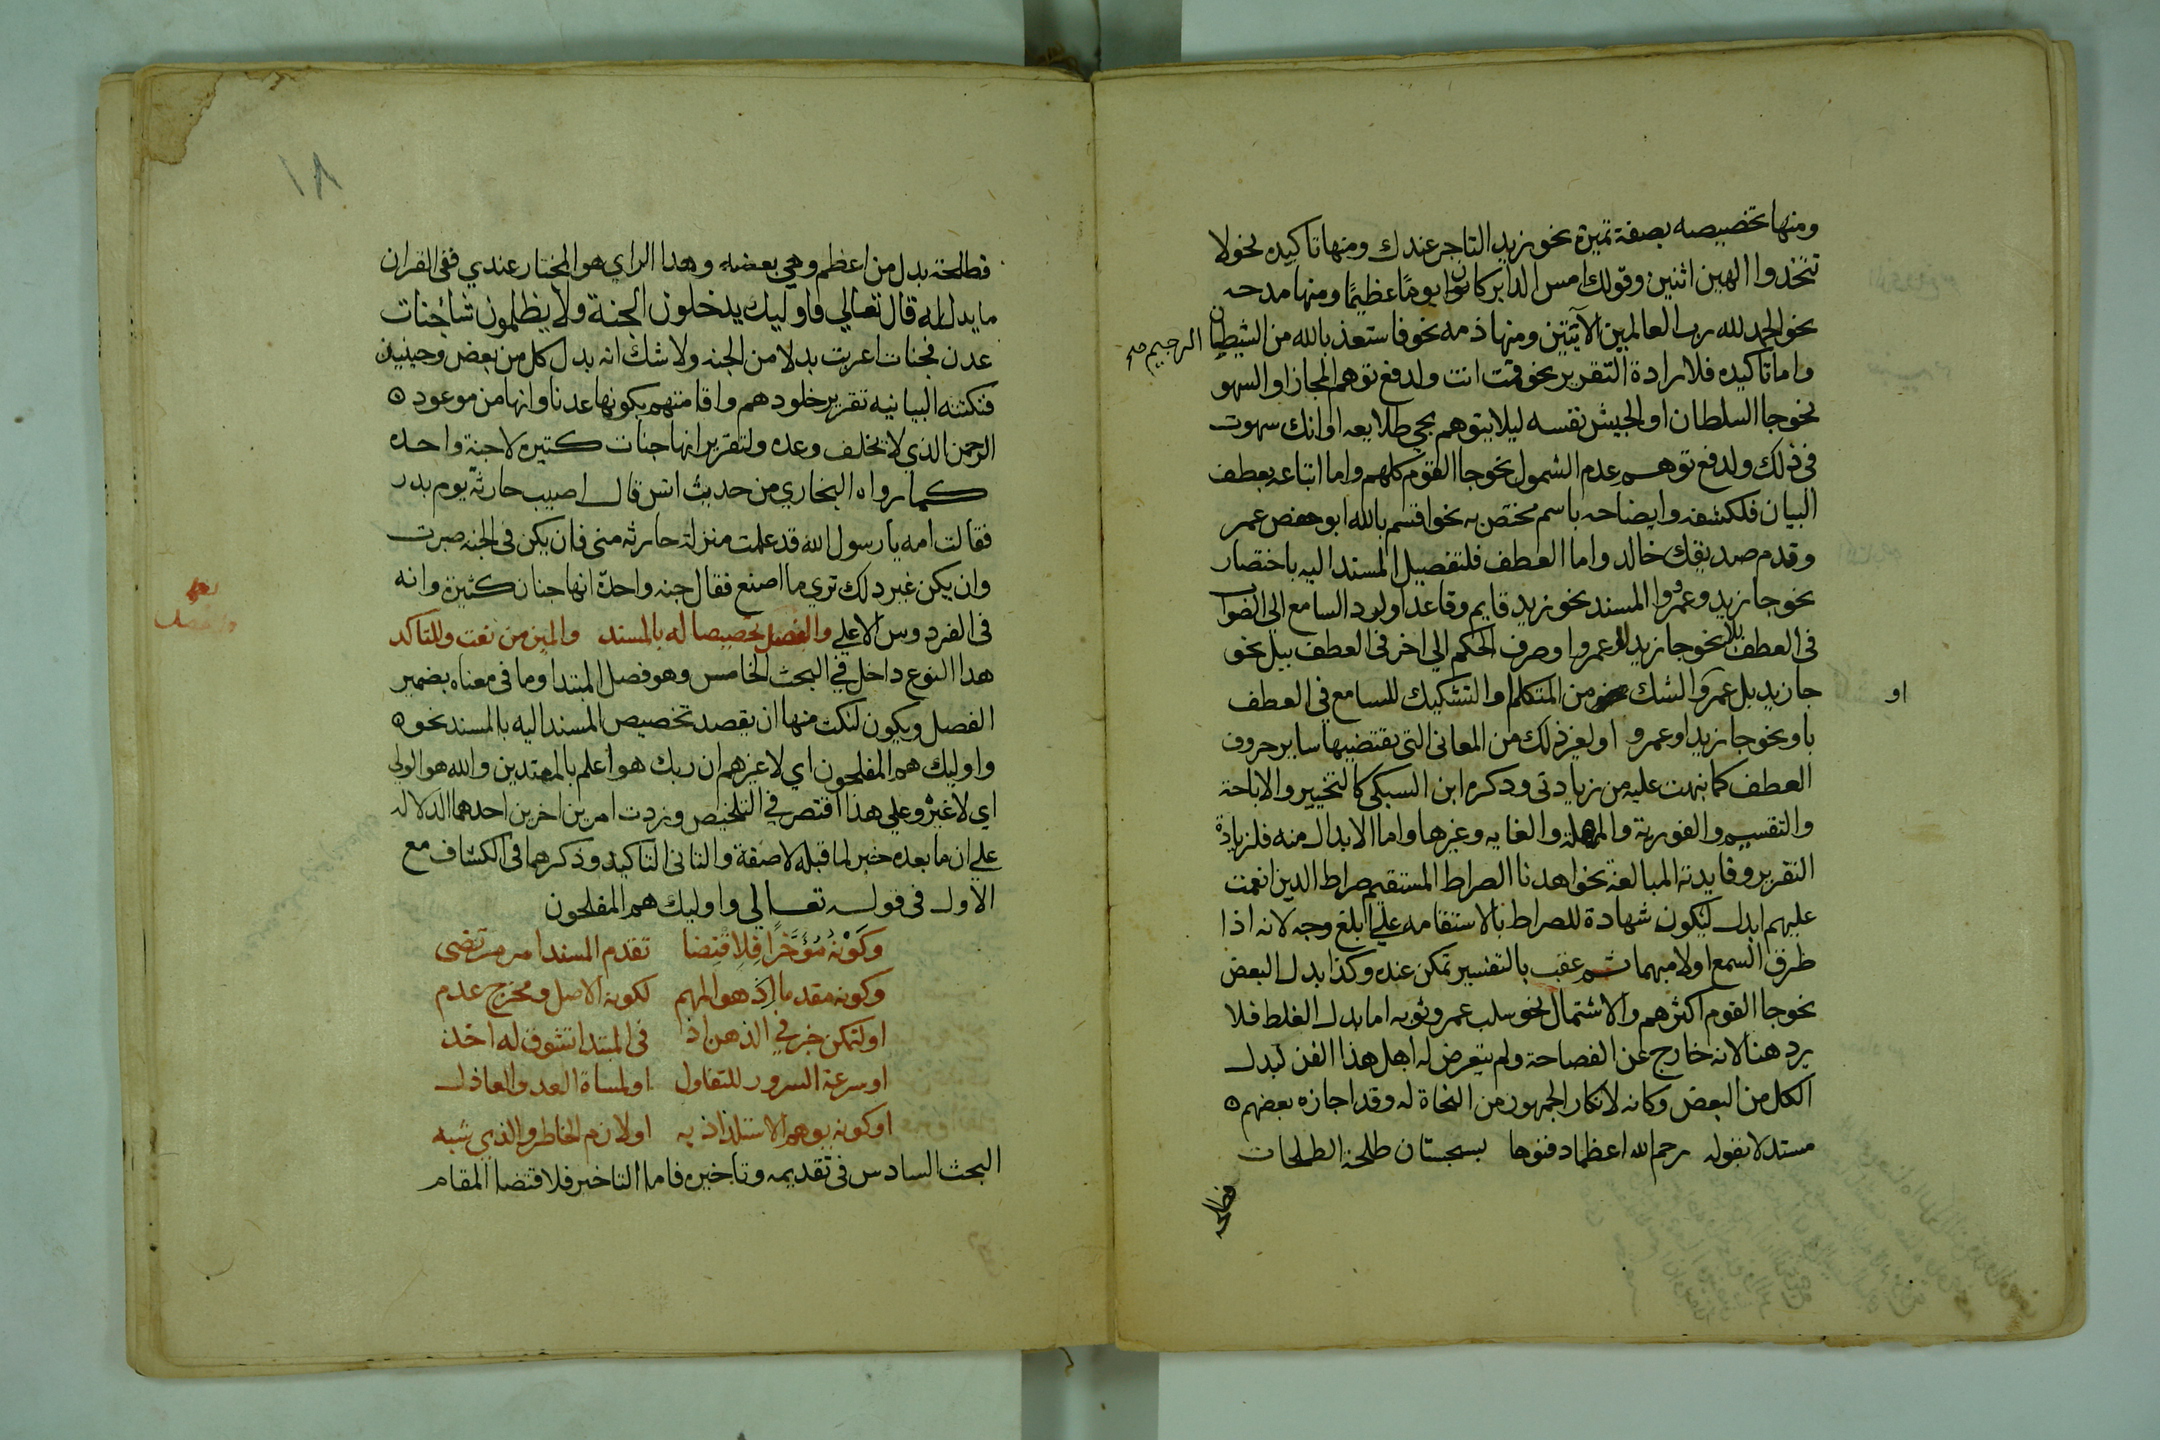 ومنها تخصيصه بصفة تميزه نحو زيد التاجر عندك ومنها تاكيده نحو لا
تتخذوا الهين اثنين وقولك امس الدابر كان يوما عظيما ومنها مدحه
نحو الحمد لله رب العالمين الآيتين ومنها ذمه نحو فاستعذ بالله من الشيطان الرجيم صح
واما تاكيده فلارادة التقرير نحو قمت انت ولدفع توهم المجاز او السهو
نحو جا السلطان او الجيش نفسه ليلا يتوهم مجي طلايعه او انك سهوت
في ذلك ولدفع توهم عدم الشمول نحو جا القوم كلهم واما اتباعه بعطف
البيان فلكشفه وايضاحه باسم مختص به نحو اقسم بالله ابو حفص عمر
وقدم صديقك خالد واما العطف فلتفصيل المسند اليه باختصار
نحو جا زيد وعمرو او المسند نحو زيد قايم وقاعد او لرد السامع الي الصواب
في العطف بلا نحو جا زيد لا عمرو او صرف الحكم الي اخر في العطف ببل نحو
جا زيد بل عمرو او الشك من المتكلم او التشكيك للسامع في العطف
او
باو نحو جا زيد او عمرو او لغير ذلك من المعاني التي تقتضيها ساير حروف
العطف كما نبهت عليه من زيادتي وذكره ابن السبكي كالتخيير والاباحة
والتقسيم والفورية والمهلة والغايه وغيرها واما الابدال منه فلزيادة
التقرير وفايدته المبالغة نحو اهدنا الصراط المستقيم صراط الذين انعمت
عليهم ابدل ليكون شهادة للصراط بالاستقامه علي ابلغ وجه لانه اذا
طرق السمع اولا مبهما ثم عقب بالتفسير تمكن عنده وكذا بدل البعض
نحو جا القوم اكثرهم والاشتمال نحو سلب عمرو ثوبه اما بدل الغلط فلا
يرد هنا لانه خارج عن الفصاحة ولم يتعرض له اهل هذا الفن لبدل
الكل من البعض وكانه لانكار الجمهور من النحاة له وقد اجازه بعضهم
مستدلا بقوله رحم الله اعظما دفنوها بسجستان طلحة الطلحات
فطلحه
١٨
فطلحة بدل من اعظم وهي بعضه وهذا الراي هو المختار عندي ففي القران
ما يدل له قال تعالي فاوليك يدخلون الجنة ولا يظلمون شيا جنات
عدن فجنات اعربت بدلا من الجنه ولا شك انه بدل كل من بعض وحينيذ
فنكتته البيانيه تقرير خلودهم واقامتهم بكونها عدنا وانها من موعود
الرحمن الذي لا يخلف وعده ولتقرير انها جنات كثيره لا جنة واحده
كما رواه البخاري من حديث انس قال اصيب حارثة يوم بدر
فقالت امه يا رسول الله قد علمت منزلة حارثه مني فان يكن في الجنه صبرت
وان يكن غير ذلك تري ما اصنع فقال جنه واحدة انها جنان كثيرة وانه
في الفردوس الاعلي والفصل تخصيصا له بالمسند والميز من نعت وللتاكد
هذا النوع داخل في البحث الخامس وهو فصل المبتدا وما في معناه بضمير
الفصل ويكون لنكت منها ان يقصد تخصيص المسند اليه بالمسند نحو
واوليك هم المفلحون اي لا غيرهم ان ربك هو اعلم بالمهتدين والله هو الولي
اي لا غيره وعلي هذا اقتصر في التلخيص وزدت امرين اخرين احدهما الدلاله
علي ان ما بعده خبر لما قبله لا صفة والثاني التاكيد وذكرهما في الكشاف مع
الاول في قوله تعالي واوليك هم المفلحون
وكونه مؤخرا فلاقتضا تقدم المسند امر مرتضى
وكونه مقدما اذ هو المهم لكونه الاصل ومخرج عدم
او لتمكن خبر في الذهن اذ في المبتدا تشوق له اخذ
او سرعة السرور للتفاول او لمساة العدو والعاذل
او كونه يوهم الاستلذاذ به او لازم الخاطر والذي شبه
البحث السادس في تقديمه وتاخيره فاما التاخير فلاقتضا المقام